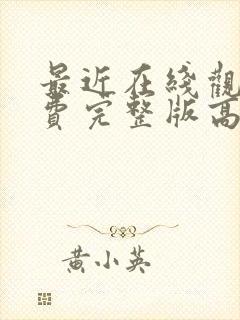 最近在线觀
費完整版高
黄小英